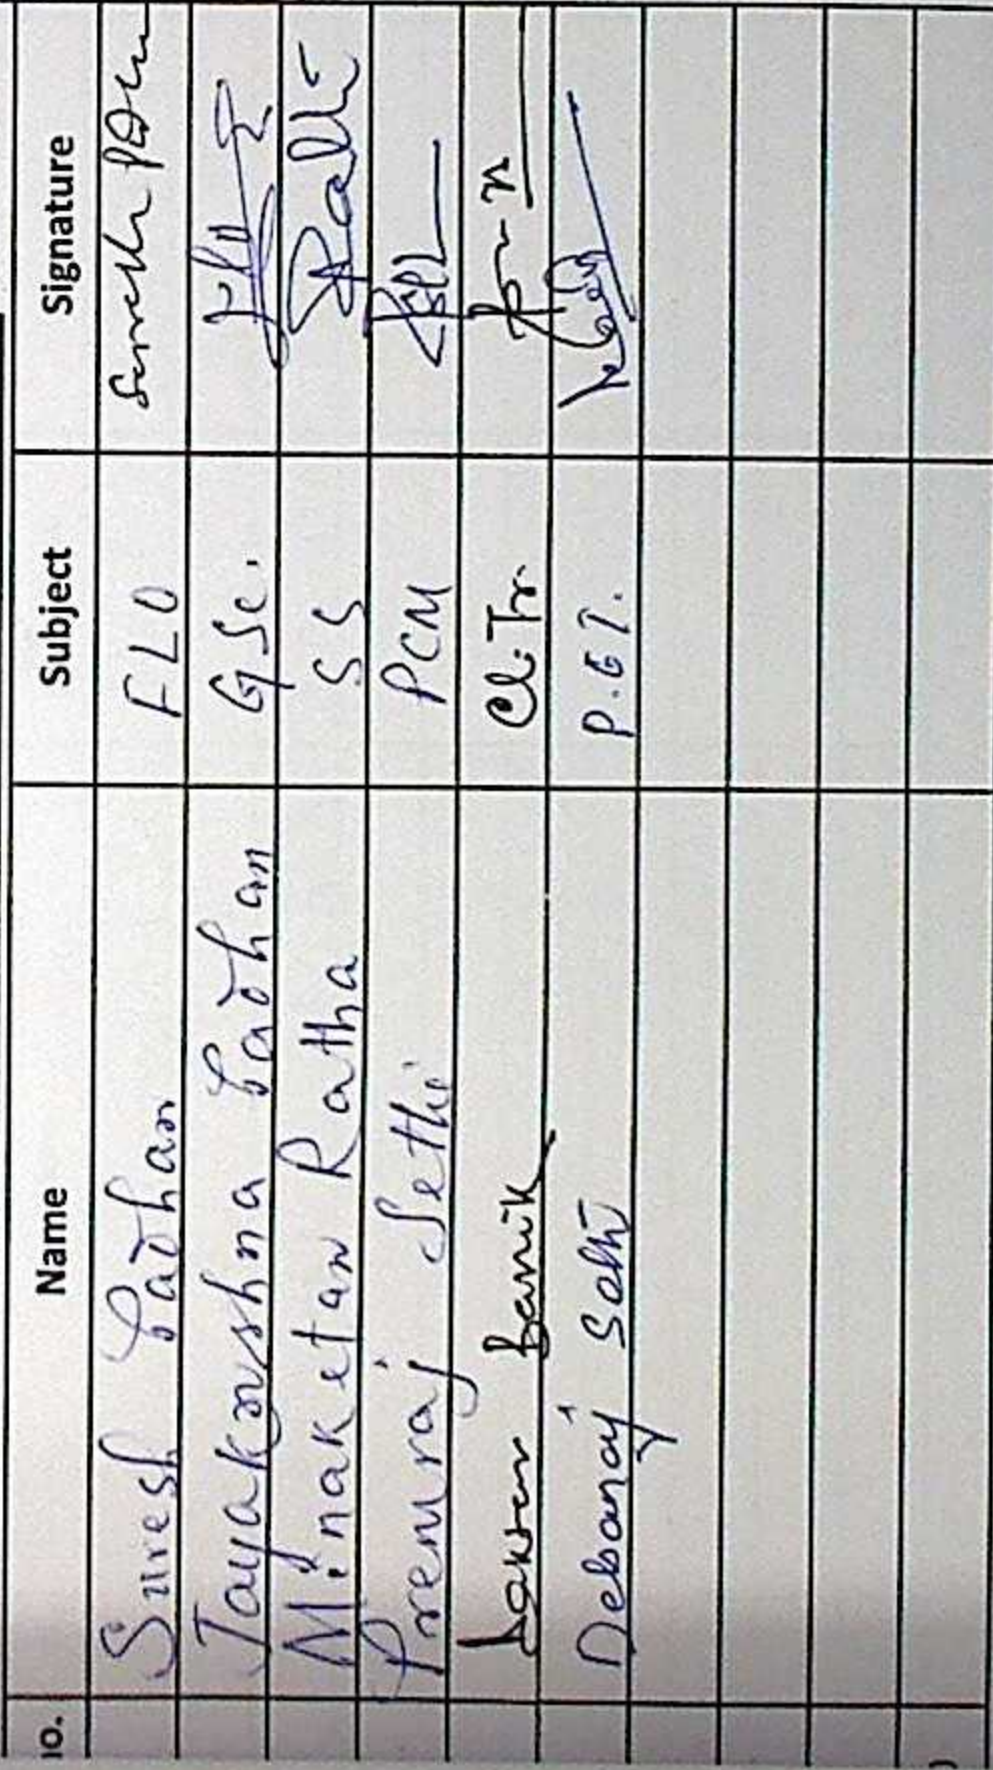 no. Name Subject Signature
Suresh Padhan FLO Suresh Padhan
Jayakrushna Padhan G.Sc.
Minaketan Ratha SS Ratha
Premraj Sethi PCM
Barik Cl.Tr.
Debanaj Sethi P.G.T.